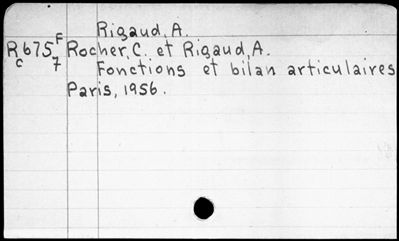 Rigaud, A.
F
R675 Rocher, C. et Rigaud, A.
c 7 Fonctions et bilan articulaires
Paris, 1956.